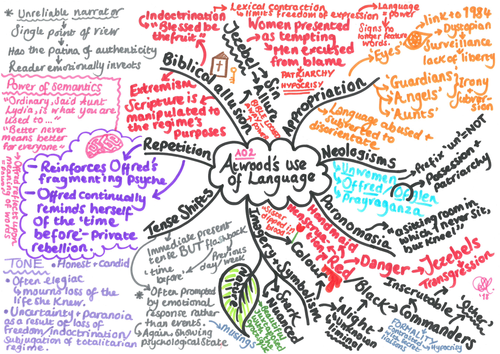 * Unreliable narrator
Single point of view
Has the patina of authenticity
Reader emotionally invests
Power of semantics
"Ordinary, said Aunt
Lydia, is what you are
used to..."
"Better never
means better
for everyone"
Offred reflects upon
meaning of words
Repetition
- Reinforces Offred's
fragmenting psyche
- Offred continually
reminds herself
of the 'time
before' - Private
rebellion.
TONE • Honest + Candid
• Often elegiac
↳ mount loss of
the life she knew.
• Uncertainty + paranoia
as a result of loss of
freedom/indoctrination/
subjugation of totalitarian
regime.
Biblical allusion
Indoctrination
"Blessed be
the fruit"
Lexical contraction
↳ limits freedom of expression
Extremism
Scripture is
manipulated to
the regime's
purposes
Jezebel
Women presented
as temptress
Men excused
from blame
→ PATRIARCHY
HYPOCRISY
Appropriation
Language
= power
Signs no
longer feature
words.
'Eyes'
link to 1984
Dystopian
Surveillance
lack of liberty
'Guardians'
'Angels'
'Aunts'
Irony
Subver-
sion
Language abused +
subverted to
disorientate
A02
Atwood's use
of Language
Neologisms
- Unwomen
- Offred/Ofglen
- Prayvaganza
pref: un = NOT
Possession +
patriarchy
Paronomasia
"a sitting room in
which I never sit,
but kneel"
Tense Shifts
Immediate present
tense BUT flashback
• time
before
• Previous
day/week
* Often prompted
by emotional
response rather
than events.
Again, showing
psychological state
musings
Imagery + Symbolism
Colour
Handmaid
Red
Danger
Jezebels
Transgression
'Black'
Commanders
Inscrutable
'Night'
FORMALITY
Hypocrisy